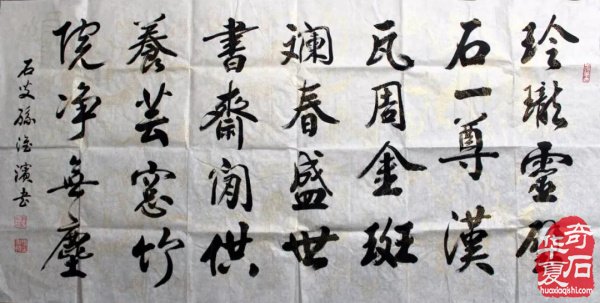 玲瓏靈璧
石一尊漢
瓦周金斑
斕春盛世
書齋閑供
養芸窓竹
院净無塵
石叟孫淮濱书
奇石
华夏
huaxiaqishi.com